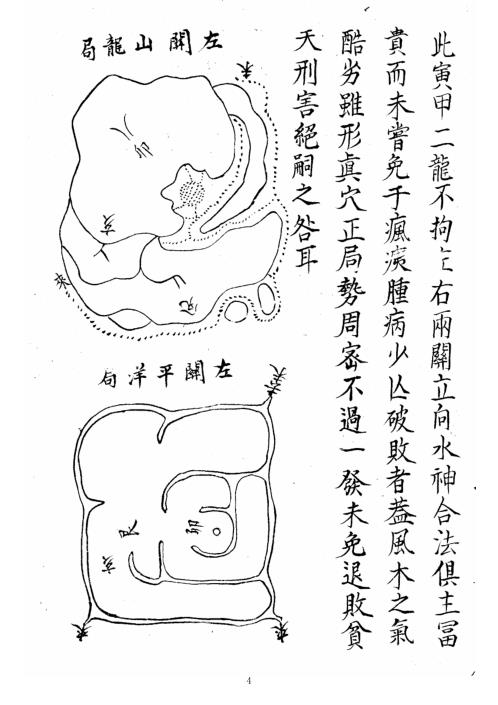 此寅甲二龍不拘左右兩關立向水神合法俱主冨
貴而未嘗免于瘋痰腫病少亾破敗者葢風木之氣
酷劣雖形眞穴正局勢周宻不過一發未免退敗貧
夭刑害絕嗣之咎耳
左關山龍局
未
卯
亥
來
左關平洋局
卯
艮
亥
來
來
4